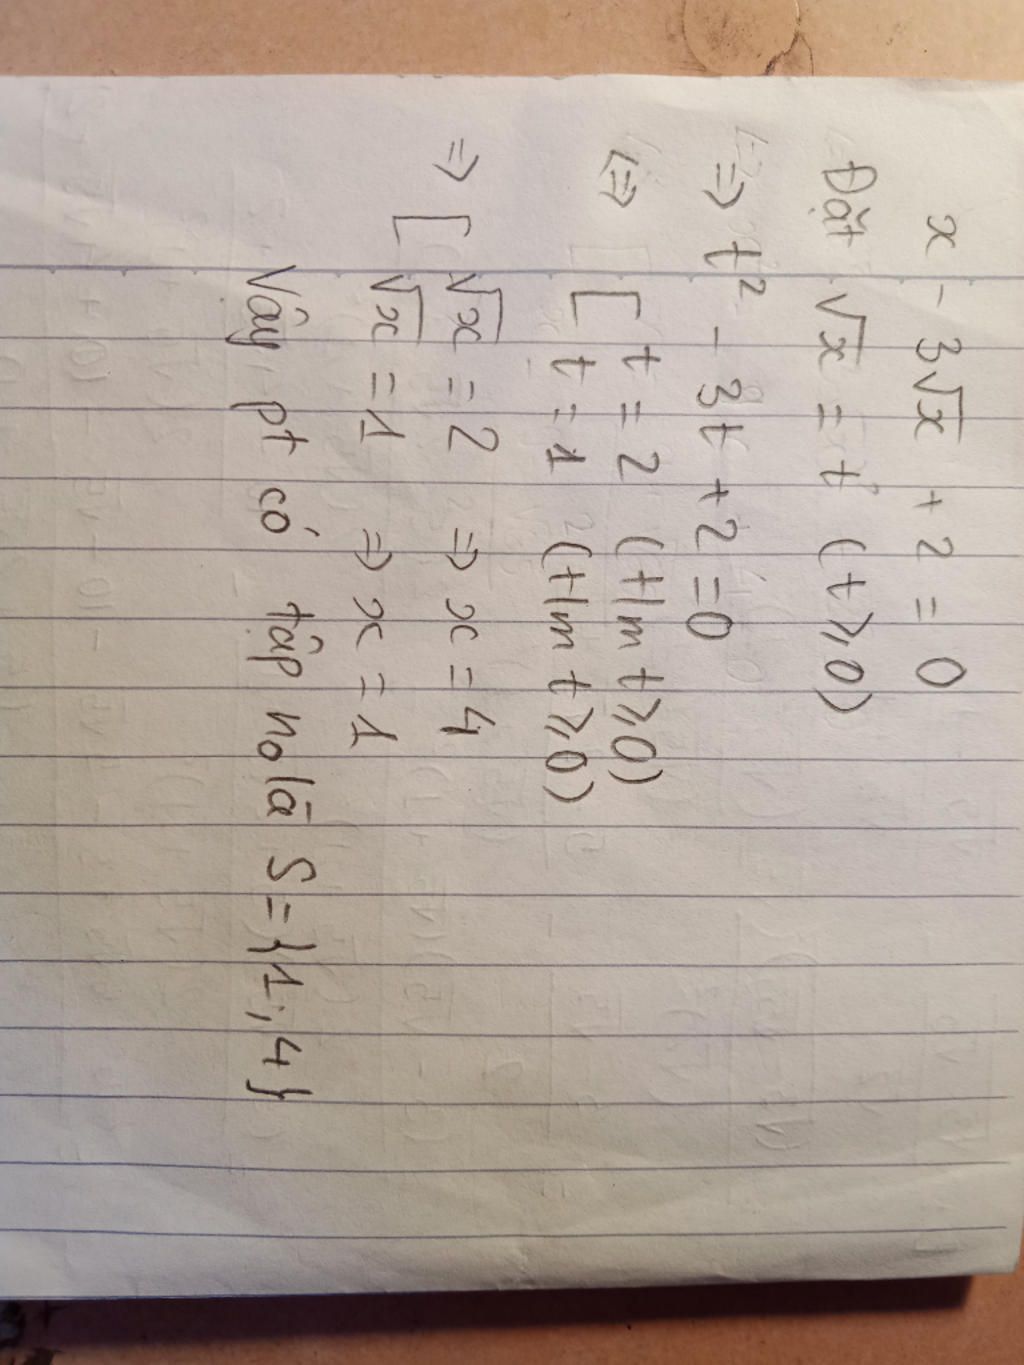 x - 3√x + 2 = 0
Đặt √x = t (t ≥ 0)
=> t² - 3t + 2 = 0
<=> [ t = 2 (t/m t ≥ 0)
t = 1 (t/m t ≥ 0)
=> [ √x = 2 => x = 4
√x = 1 => x = 1
Vậy pt có tập no là S = {1; 4}